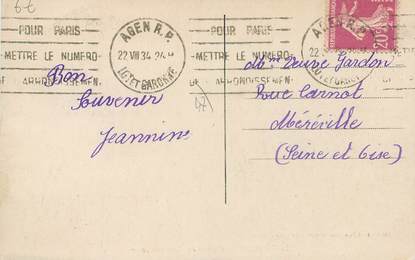 6 €
POUR PARIS
METTRE LE NUMERO
D' ARRONDISSEMEN.
AGEN R.P.
22 VIII 34
LOT ET GARONNE
POUR PARIS
METTRE LE NUMERO
D' ARRONDISSEMEN.
AGEN R.P.
22
LOT ET GARONNE
20c
Bon
Souvenir
Jeannine
47
Mme Veuve Gardon
Rue Carnot
Méréville
(Seine et Oise)